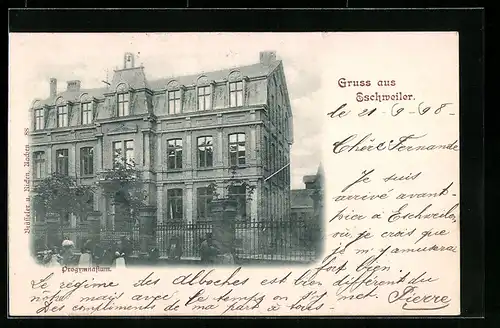 Gruss aus
Eschweiler.
le 21-9-98-
Chère Fernande
Je suis
arrivé avant-
hier à Eschweiler
où je crois que
je m'y amuserai
fort bien
Progymnasium.
Le régime des Alboches est bien différent du
nôtre mais avec le temps on s'y met
Pierre
Des compliments de ma part à tous.